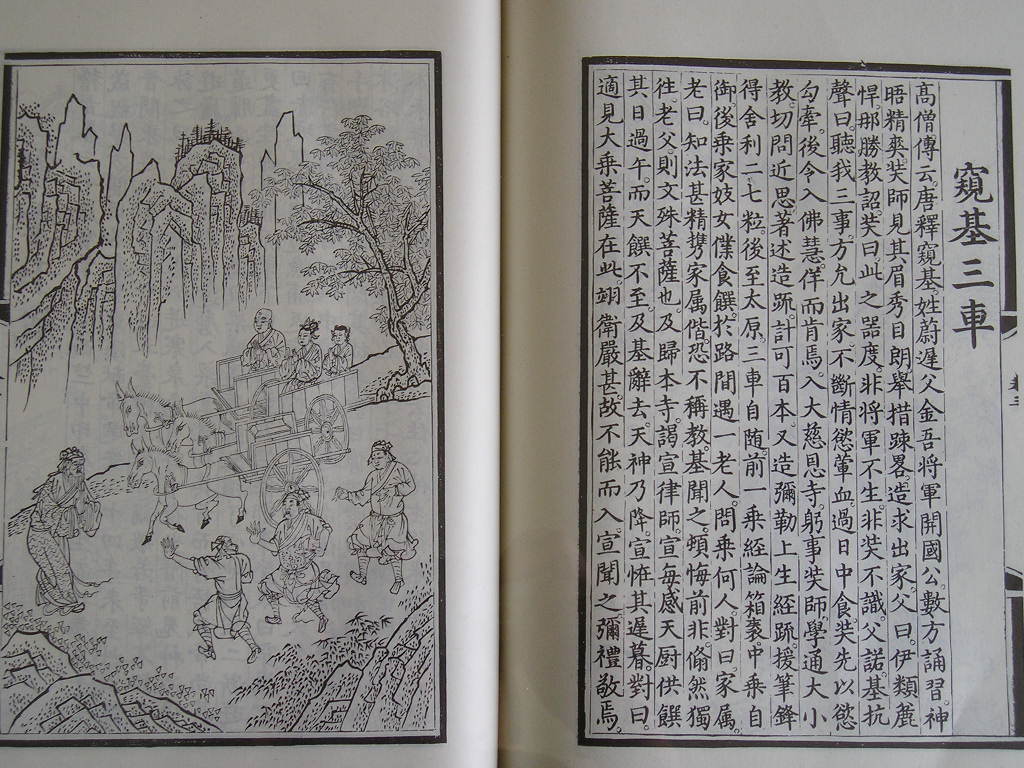 窺基三車
高僧傳云唐釋窺基姓蔚遲父金吾將軍開國公數方誦習神
晤精爽奘師見其眉秀目朗舉措踈畧造求出家父曰伊類麄
悍那勝教詔奘曰此之噐度非將軍不生非奘不識父諾基抗
聲曰聽我三事方允出家不斷情慾葷血過日中食奘先以慾
勾牽後令入佛慧佯而肯焉入大慈恩寺躬事奘師學通大小
教切問近思著述造疏計可百本又造彌勒上生經疏援筆鋒
得舍利二七粒後至太原三車自随前一乘經論箱袠中乘自
御後乘家妓女僕食饌於路間遇一老人問乘何人對曰家属
老曰知法甚精擕家属偕恐不稱教基聞之頓悔前非翛然獨
往老父則文殊菩薩也及歸本寺謁宣律師宣每感天厨供饌
其日過午而天饌不至及基辭去天神乃降宣恠其遲暮對曰
適見大乘菩薩在此翊衛嚴甚故不能而入宣聞之彌禮敬焉